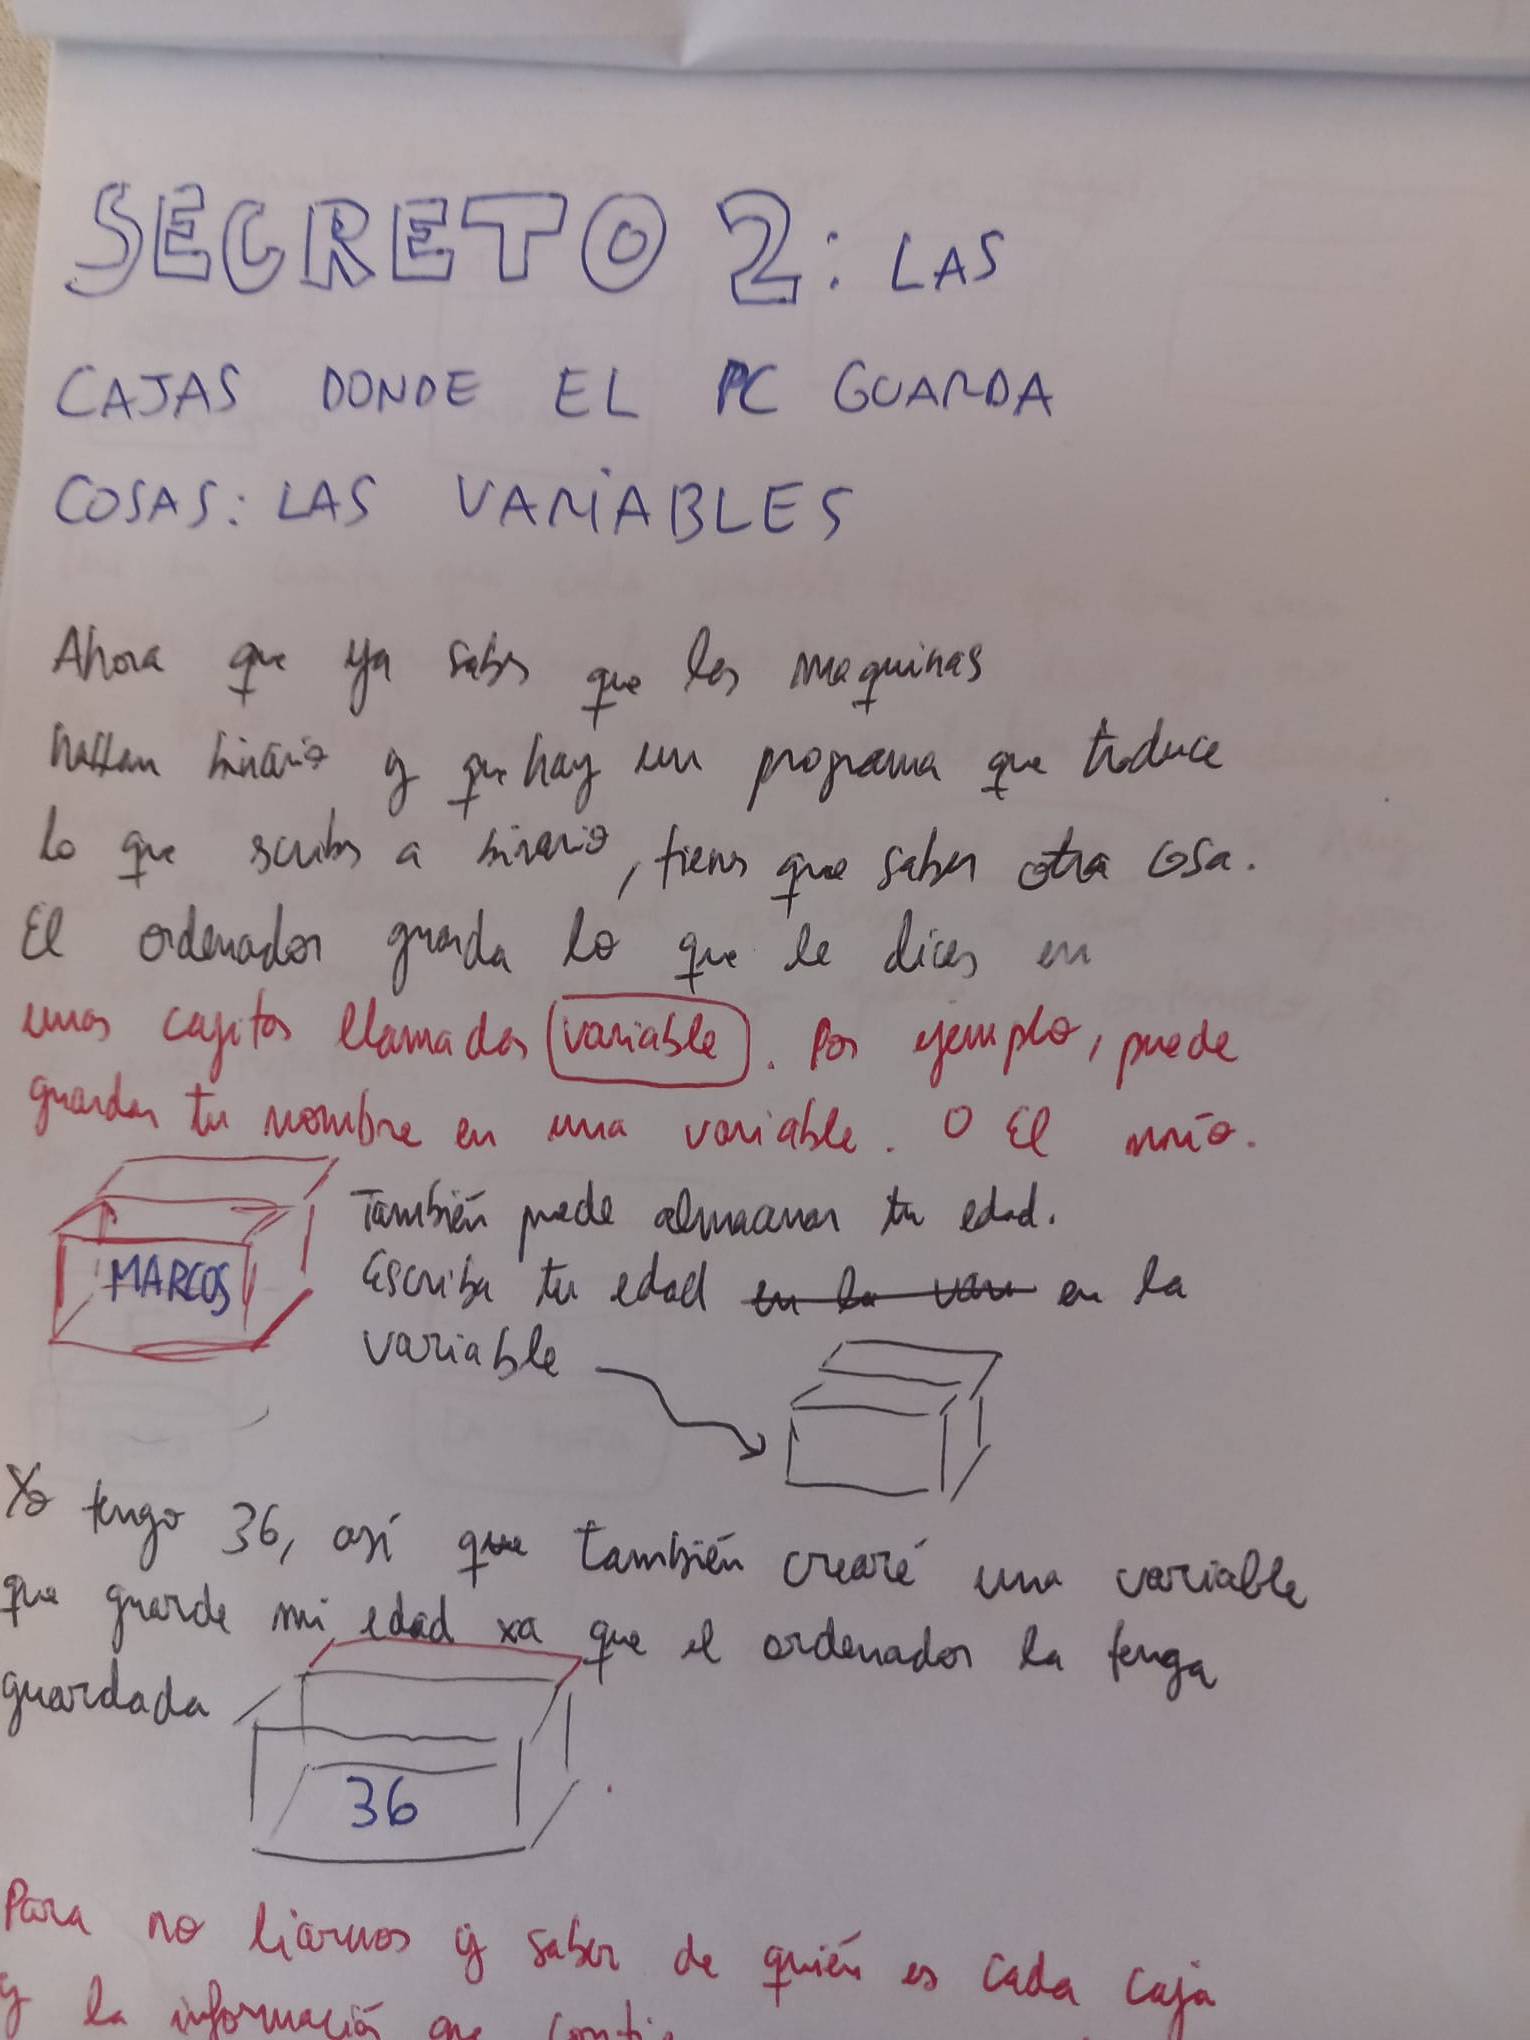 SECRETO 2: LAS
CAJAS DONDE EL PC GUARDA
COSAS: LAS VARIABLES
Ahora que ya sabes que las maquinas
hablan binario y que hay un programa que traduce
lo que escribes a binario, tienes que saber otra cosa.
El ordenador guarda lo que le dices en
unas cajitas llamadas variable. Por ejemplo, puede
guardar tu nombre en una variable. O El mío.
También puede almacenar tu edad.
MARCOS
Escriba tu edad en la var en la
variable
Yo tengo 36, así que también crearé una variable
que guarde mi edad xa que el ordenador la tenga
guardada
36
Para no liarnos y saber de quién es cada caja
y la información que